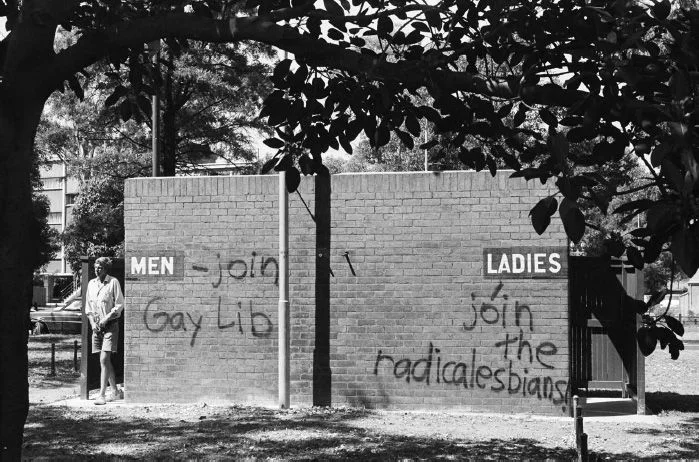 MEN - join
Gay Lib
LADIES
join
the
radicalesbians